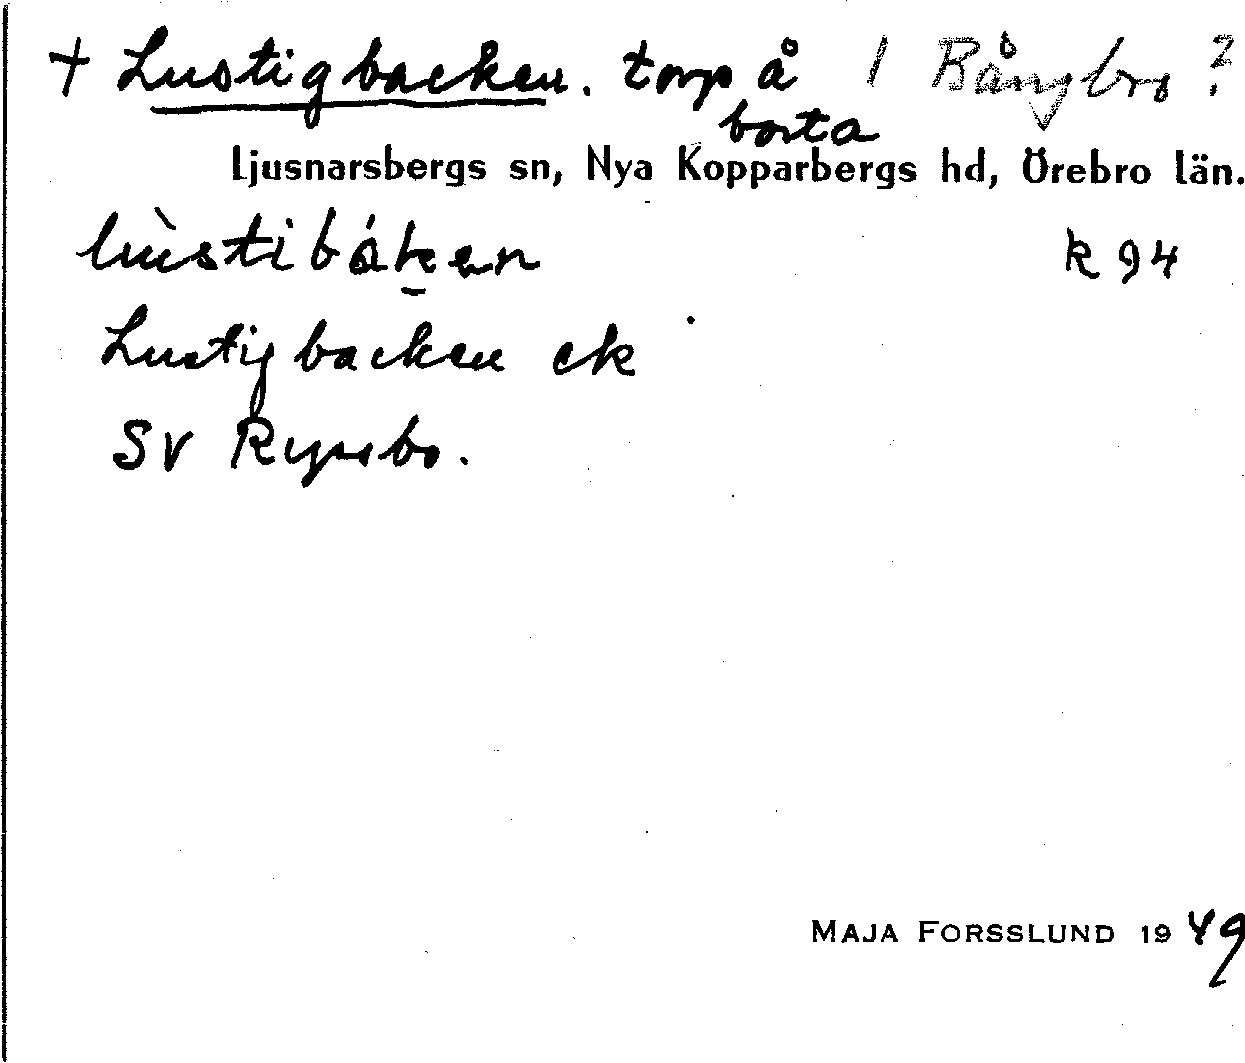 + Lustigbacken. torp å / Rångbro?
borta
Ljusnarsbergs sn, Nya Kopparbergs hd, Örebro län.
lùstibáken k 94
Lustigbacken ek
SV
MAJA FORSSLUND 1949